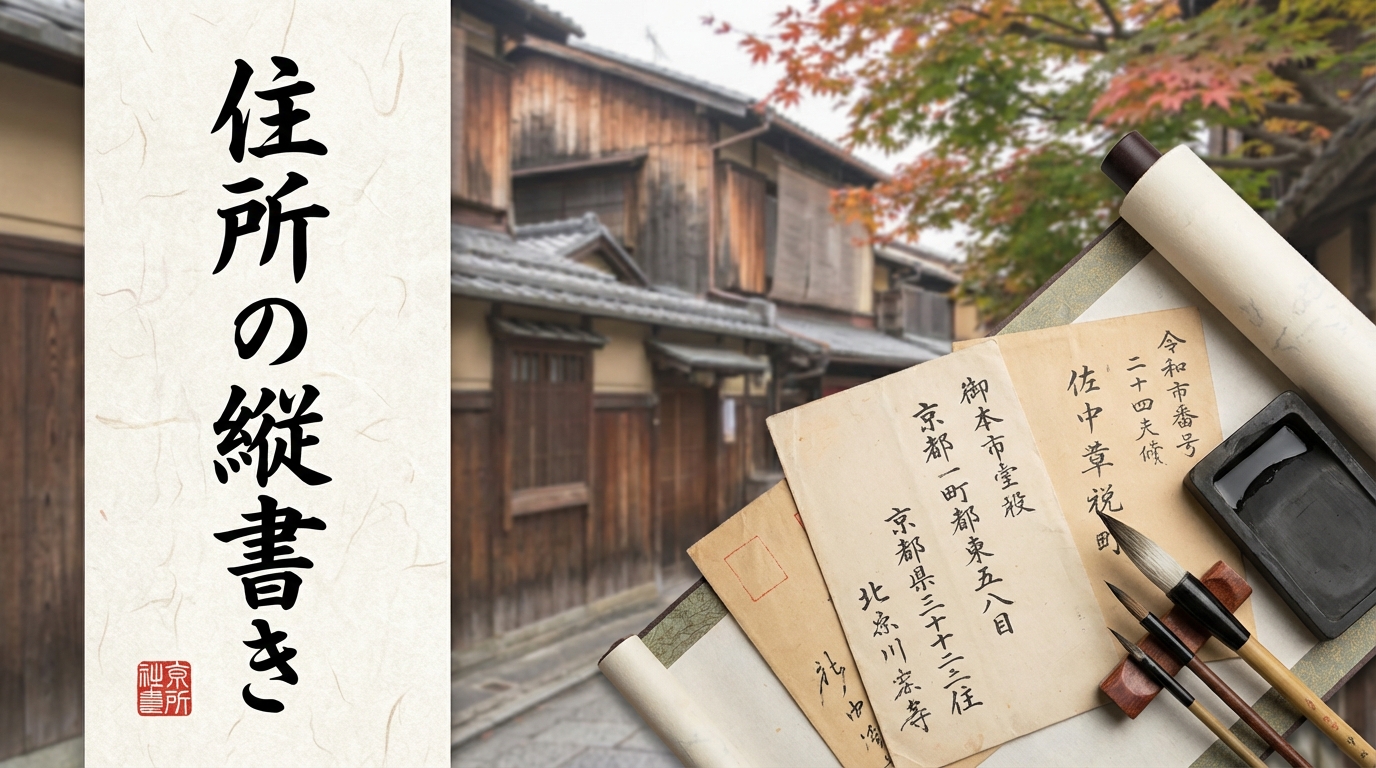 住所の縦書き
京所
社書
令和市番号
二十四夫候
佐中草税町
御本市室殺
京都一町都東五八目
京都県三十十二三住
北京川寺